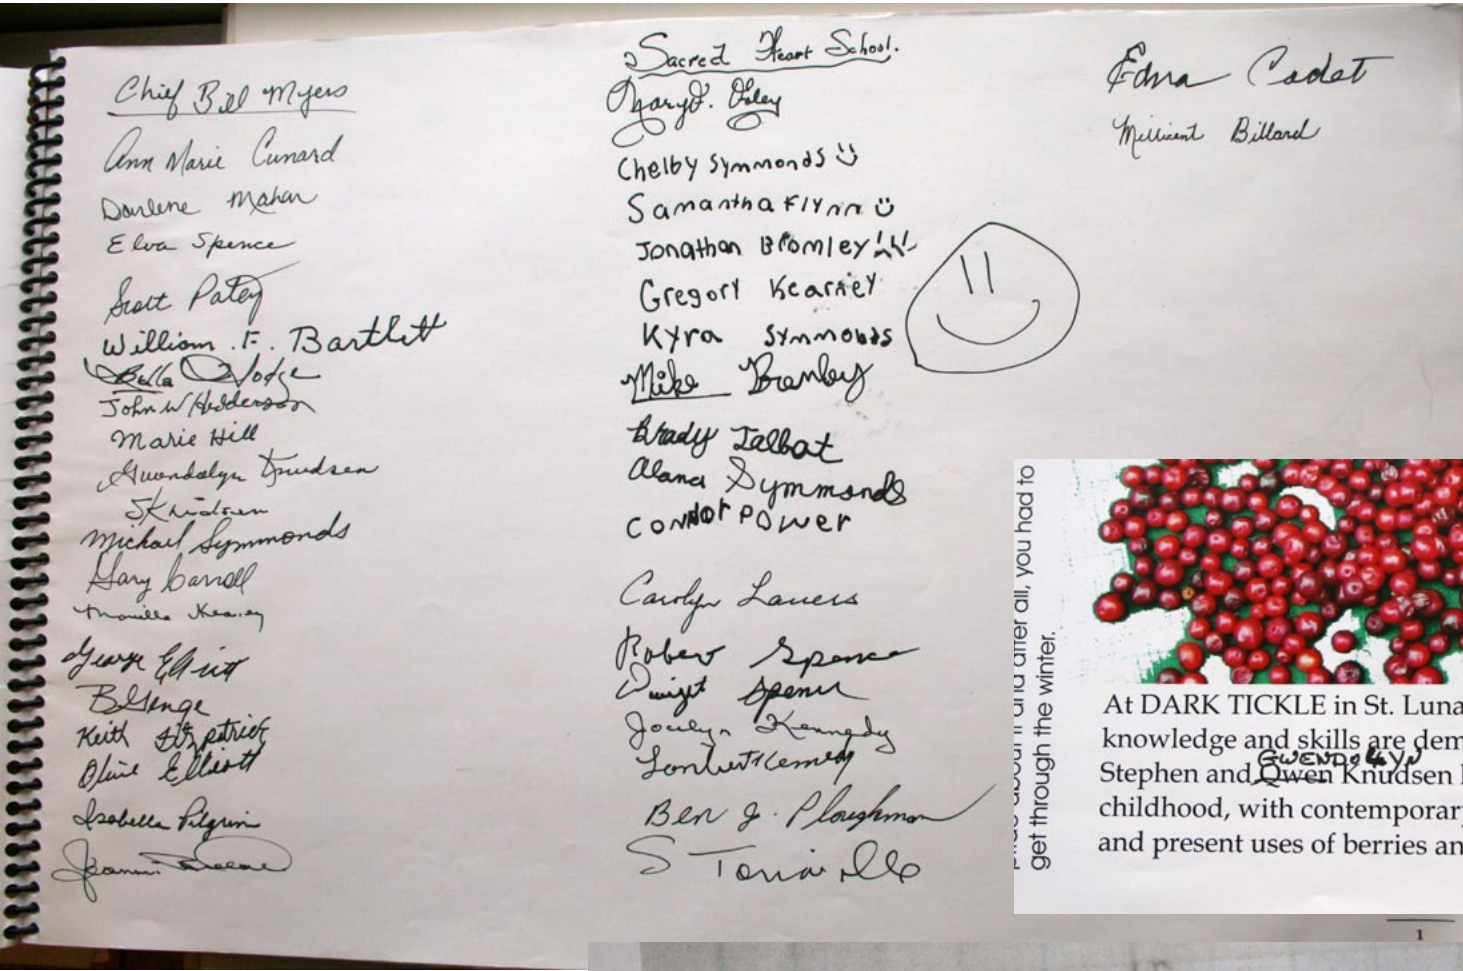 Chief Bill Myers
Ann Marie Cunard
Darlene Mahar
Elva Spence
Scott Patey
William . F. Bartlett
Bella Hodge
John W Hedderson
Marie Hill
Gwendolyn Knudsen
S Knudsen
Michael Symmonds
Gary Carroll
Kearney
George Elliott
B Genge
Keith Fitzpatrick
Olive Elliott
Isabella Pilgrim
Sacred Heart School.
Mary F. Foley
Chelby Symmonds
Samantha Flynn
Jonathan Bromley
Gregory Kearney
Kyra Symmonds
Mike
Brady Talbot
Alana Symmonds
Connor Power
Carolyn Lavers
Robert Spence
Dwight Spence
Jocelyn Kennedy
Lambert Kennedy
Ben J. Ploughman
S
Edna Cadet
Millicent Billard
and after all, you had to
get through the winter.
At DARK TICKLE in St. Luna
knowledge and skills are dem
GWENDOLYN
Stephen and Qwen Knudsen
childhood, with contemporary
and present uses of berries an
1